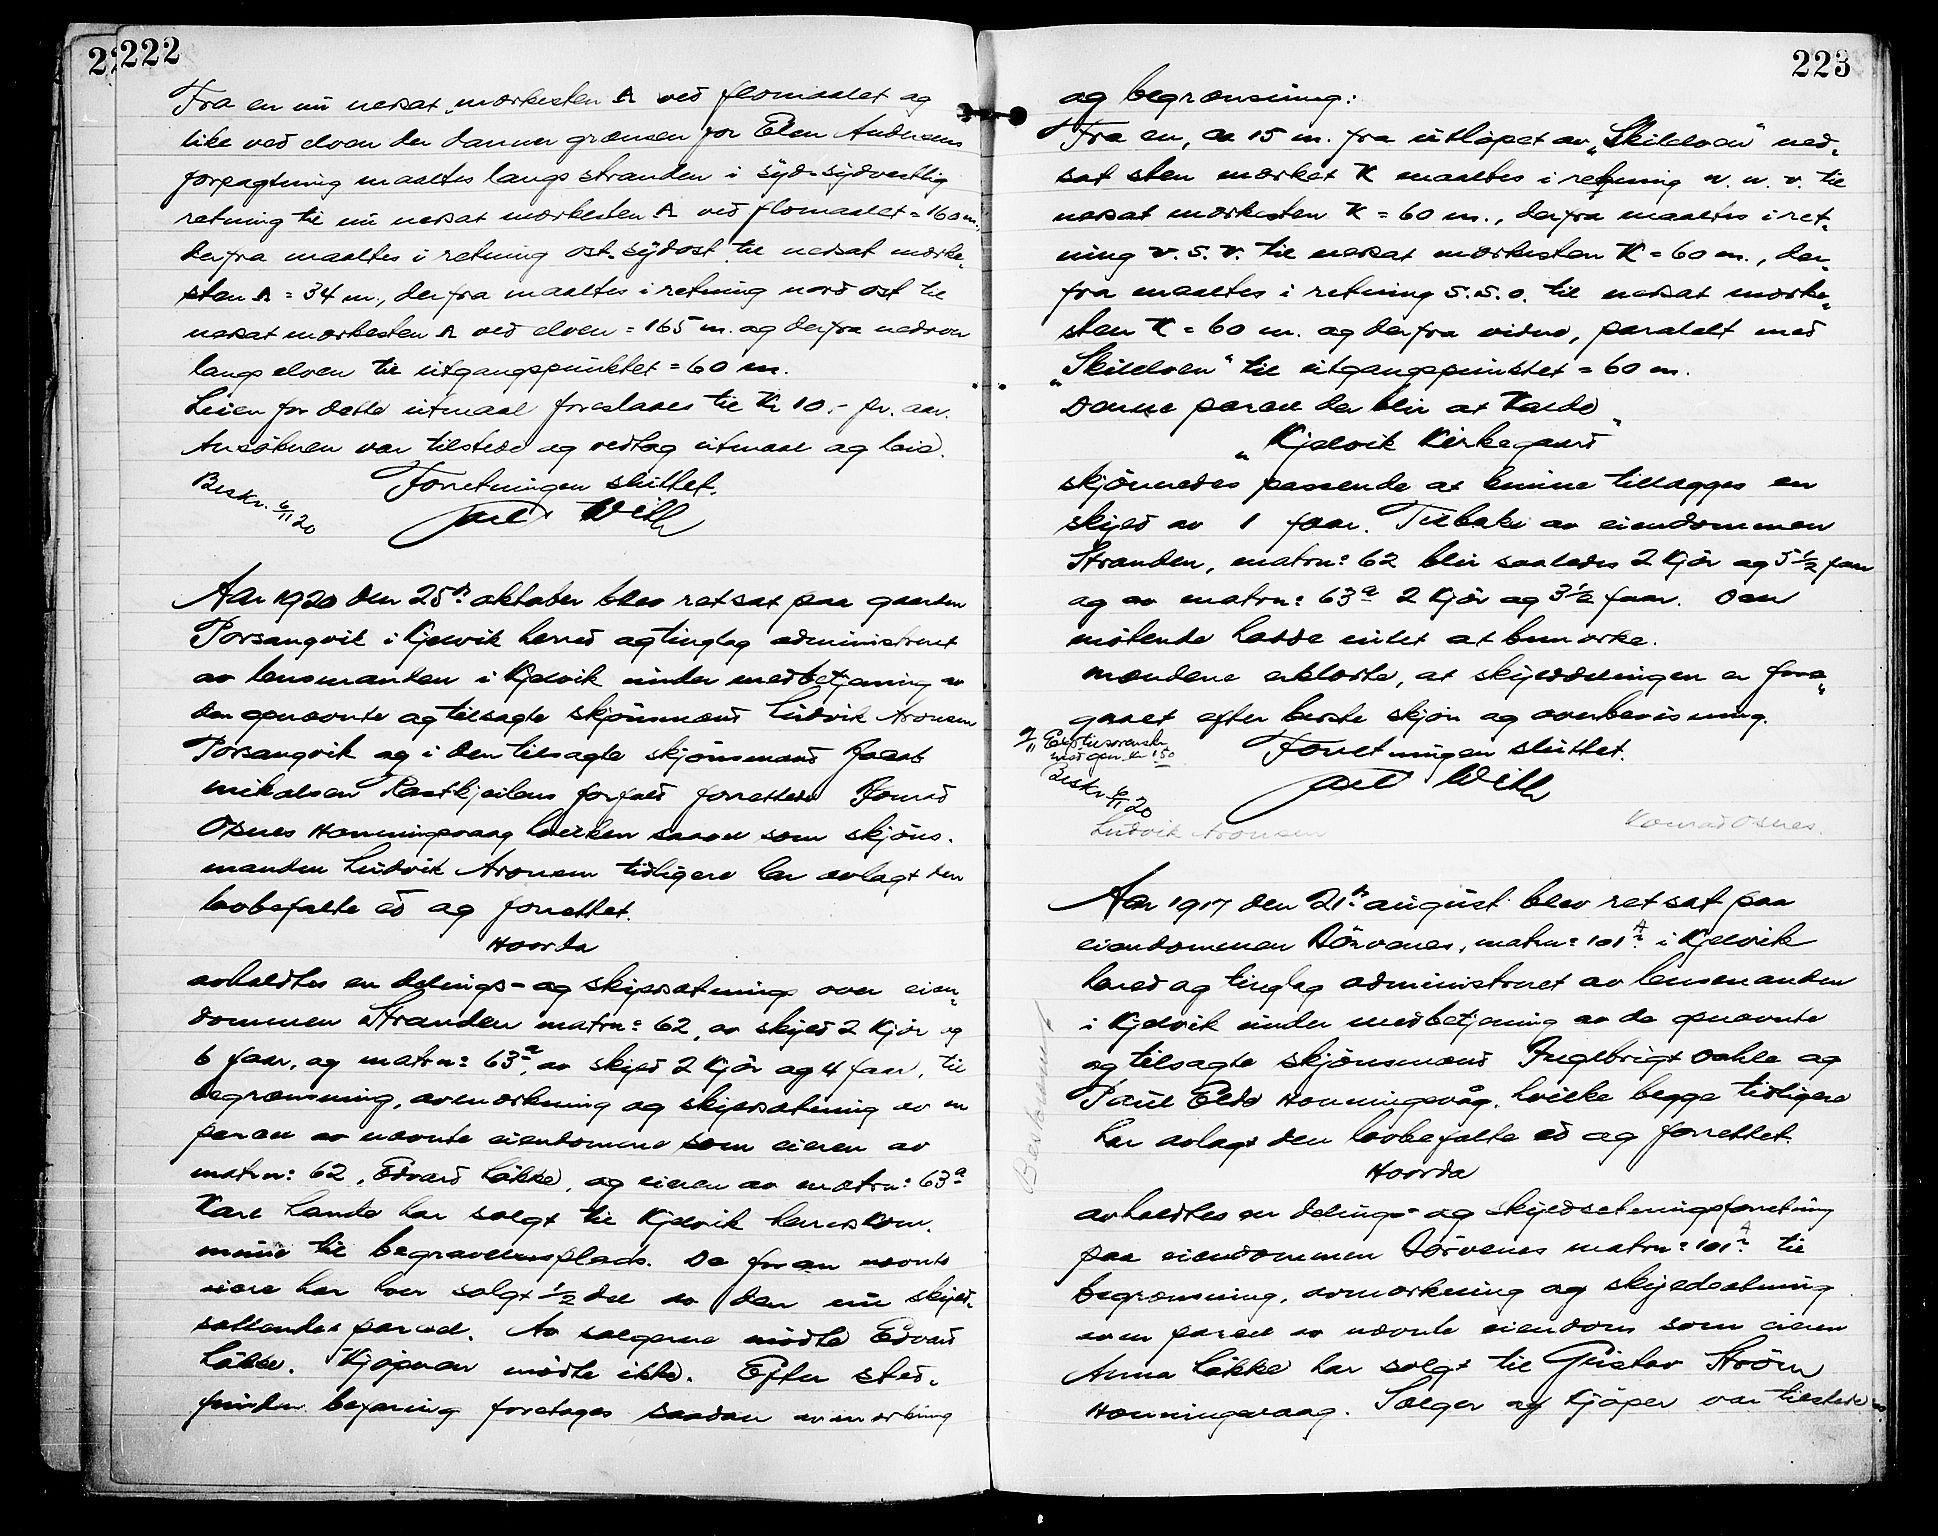 222
Fra en nu nedsat merkesten A ved flomaalet og
like ved elven der danner grænsen for Elen Andersens
forpagtning maaltes langs stranden i syd-sydvestlig
retning til nu nedsat merkesten A ved flomaalet = 160 m.,
derfra maaltes i retning ost-sydost til nedsat merke-
sten A = 34 m., derfra maaltes i retning nord ost til
nedsat merkesten A ved elven = 165 m. og derfra nedover
langs elven til utgangspunktet = 60 m.
Leien for dette utmaal foreslaaes til Kr 10,- pr. aar.
Ansökeren var tilstede og vedtog utmaal og leie.
Forretningen sluttet.
Beskr. 6/11 20
Will
Aar 1920 den 25de oktober blev ret sat paa gaarden
Porsangvik i Kjelvik herred og tinglag administreret
av lensmanden i Kjelvik under medbetjening av
den opnævnte og tilsagte skjönsmand Ludvik Aronsen
Porsangvik og i den tilsagte skjönsmand Jacob
Mikalsen forfald forrettede Konrad
Osnes Honningsvaag hvilken saavel som skjöns-
manden Ludvik Aronsen tidligere har avlagt den
lovbefalte ed og forrettet.
Hvorda
avholdtes en delings- og skyldsætning over eien-
dommen Stranden matrn: 62, av skyld 2 Kjör og
6 faar, og matrn: 63a, av skyld 2 Kjör og 4 faar, til
begrænsning, avmerkning og skyldsætning av en
parcel av nævnte eiendomme som eieren av
matrn: 62, Edvard Lökke, og eieren av matrn: 63a
Karl Lande har solgt til Kjelvik herredskom-
mune til begravelsesplads. De foran nævnte
eiere har hver solgt 1/2 del av den nu skyld-
sættendes parcel. Av sælgerne mödte Edvard
Lökke. Kjöperen mödte ikke. Efter sted-
funden befaring foretoges saadan avmerkning
223
og begrænsning:
Fra en, ca 15 m. fra utlöpet av "Skildelven" ned-
sat sten merket K maaltes i retning v. n. v. til
nedsat merkesten K = 60 m., derfra maaltes i ret-
ning v. s. v. til nedsat merkesten K = 60 m., der-
fra maaltes i retning s. s. o. til nedsat merke-
sten K = 60 m. og derfra videre, paralelt med
"Skildelven" til utgangspunktet = 60 m.
Denne parcel der blir at kalde
"Kjelvik Kirkegaard"
skjönnedes passende at kunne tillægges en
skyld av 1 faar. Tilbake av eiendommen
Stranden, matrn: 62 blir saaledes 2 Kjör og 5 1/2 faar
og av matrn: 63a 2 Kjör og 3 1/2 faar. Den
mötende hadde intet at bemerke.
Mændene erklærte, at skylddelingen er fore-
gaaet efter beste skjön og overbevisning.
Forretningen sluttet.
9/11 Exp til sorenskr.
med gen. kr 1.50
Beskr. 6/11 20
Will
Ludvik Aronsen
Konrad Osnes.
Aar 1917 den 21de august blev ret sat paa
eiendommen Larvenes, matrn: 101A i Kjelvik
herred og tinglag administreret av lensmanden
i Kjelvik under medbetjening av de opnævnte
og tilsagte skjönsmænd Ingebrigt Dahle og
Paul Honningsvåg, hvilke begge tidligere
har avlagt den lovbefalte ed og forrettet.
Hvorda
avholdtes en delings- og skyldsætningsforretning
paa eiendommen Larvenes matrn: 101A til
begrænsning, avmerkning og skyldsætning
av en parcel av nævnte eiendom som eieren
Anna Lökke har solgt til Gustav Ström
Honningsvaag. Sælger og Kjöper var tilstede
Beskrevet